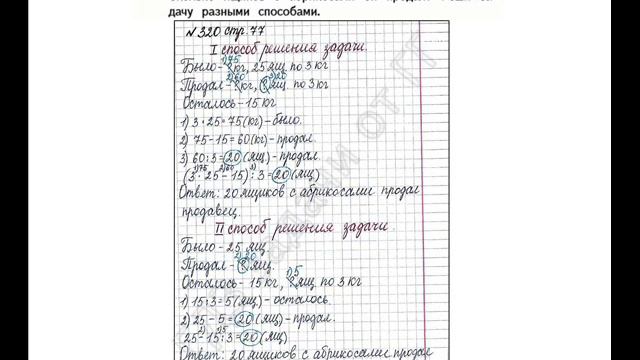 дачу разными способами.
№320 стр. 77
I способ решения задачи.
Было - ? кг, 25 ящ. по 3 кг
Продал - ? кг, ? ящ. по 3 кг
Осталось - 15 кг
1) 3 · 25 = 75 (кг) - было.
2) 75 - 15 = 60 (кг) - продал.
3) 60 : 3 = 20 (ящ) - продал.
(3 · 25 - 15) : 3 = 20 (ящ)
Ответ: 20 ящиков с абрикосами продал
продавец.
II способ решения задачи.
Было - 25 ящ.
Продал - ? ящ.
Осталось - 15 кг, ? ящ. по 3 кг
1) 15 : 3 = 5 (ящ) - осталось.
2) 25 - 5 = 20 (ящ) - продал.
25 - 15 : 3 = 20 (ящ)
Ответ: 20 ящиков с абрикосами продал